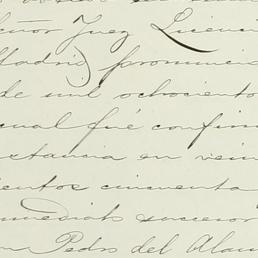 eñor Juez Licenci
Madrid pronunció
de mil ochociento
cual fué confirm
stancia en vein
ientos cincuenta
nmediato sucesor
n Pedro del Alam